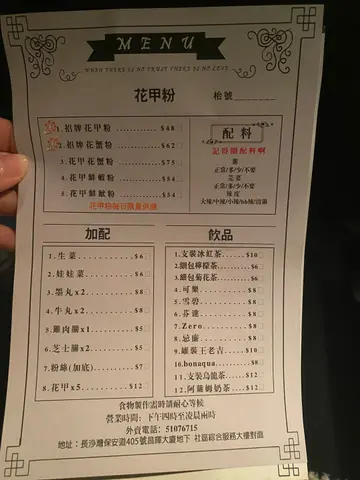 MENU
WHEN THERE IS NO TRUST THERE IS NO LOVE
花甲粉
枱號________
1.招牌花甲粉..........$48
2.招牌花蟹粉..........$62
3.花甲花蟹粉..........$75
4.花甲鮮蝦粉..........$54
5.花甲鮮魷粉..........$54
花甲粉每日限量供應
配料
記得剔配料啊
蔥
正常/多/少/不要
芫荽
正常/多/少/不要
辣度
大辣/中辣/小辣/bb辣/清湯
加配
1.生菜..........$6
2.娃娃菜..........$6
3.墨丸x2..........$8
4.牛丸x2..........$8
5.雞肉腸x1..........$5
6.芝士腸x2..........$5
7.粉絲(加底)..........$7
8.花甲x5..........$12
飲品
1.支裝冰紅茶..........$10
2.細包檸檬茶..........$6
3.細包菊花茶..........$6
4.可樂..........$8
5.雪碧..........$8
6.芬達..........$8
7.Zero..........$8
8.忌廉..........$8
9.罐裝王老吉..........$10
10.bonaqua..........$8
11.支裝烏龍茶..........$12
12.阿薩姆奶茶..........$12
食物製作需時請耐心等候
營業時間：下午四時至凌晨兩時
外賣電話：51076715
地址：長沙灣保安道405號昌暉大廈地下 社區綜合服務大樓對面